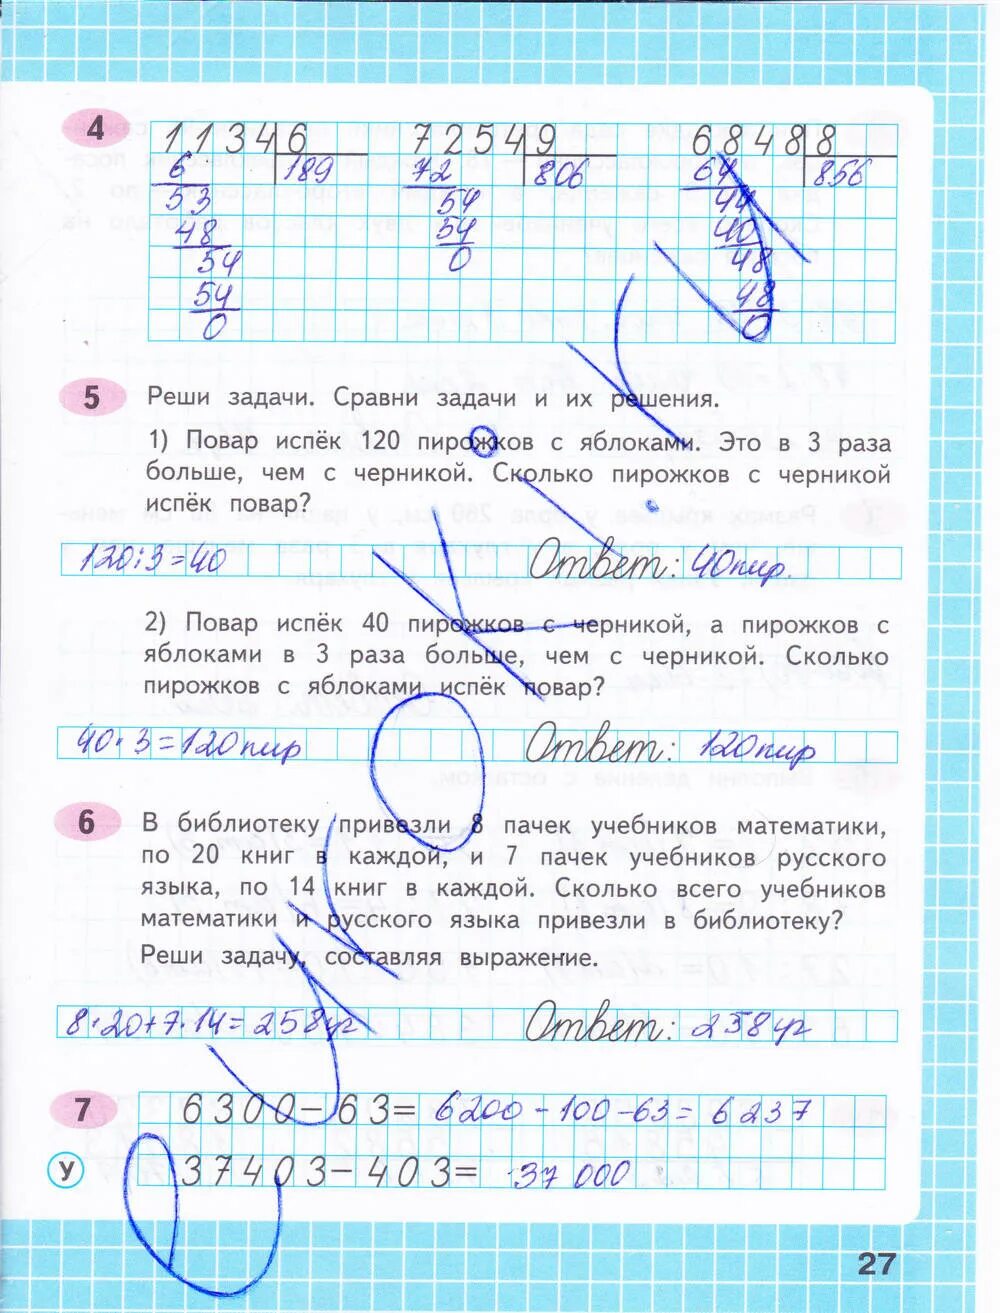 4
1134 6 7254 9 6848 8
6 189 72 806 64 856
53 54 44
48 54 40
54 0 48
54 48
0 0
5 Реши задачи. Сравни задачи и их решения.
1) Повар испёк 120 пирожков с яблоками. Это в 3 раза
больше, чем с черникой. Сколько пирожков с черникой
испёк повар?
120:3=40 Ответ: 40пир.
2) Повар испёк 40 пирожков с черникой, а пирожков с
яблоками в 3 раза больше, чем с черникой. Сколько
пирожков с яблоками испёк повар?
40·3=120пир Ответ: 120пир
6 В библиотеку привезли 8 пачек учебников математики,
по 20 книг в каждой, и 7 пачек учебников русского
языка, по 14 книг в каждой. Сколько всего учебников
математики и русского языка привезли в библиотеку?
Реши задачу, составляя выражение.
8·20+7·14=258уч Ответ: 258уч
7 6300-63= 6200-100-63=6237
У 37403-403= 37000
27